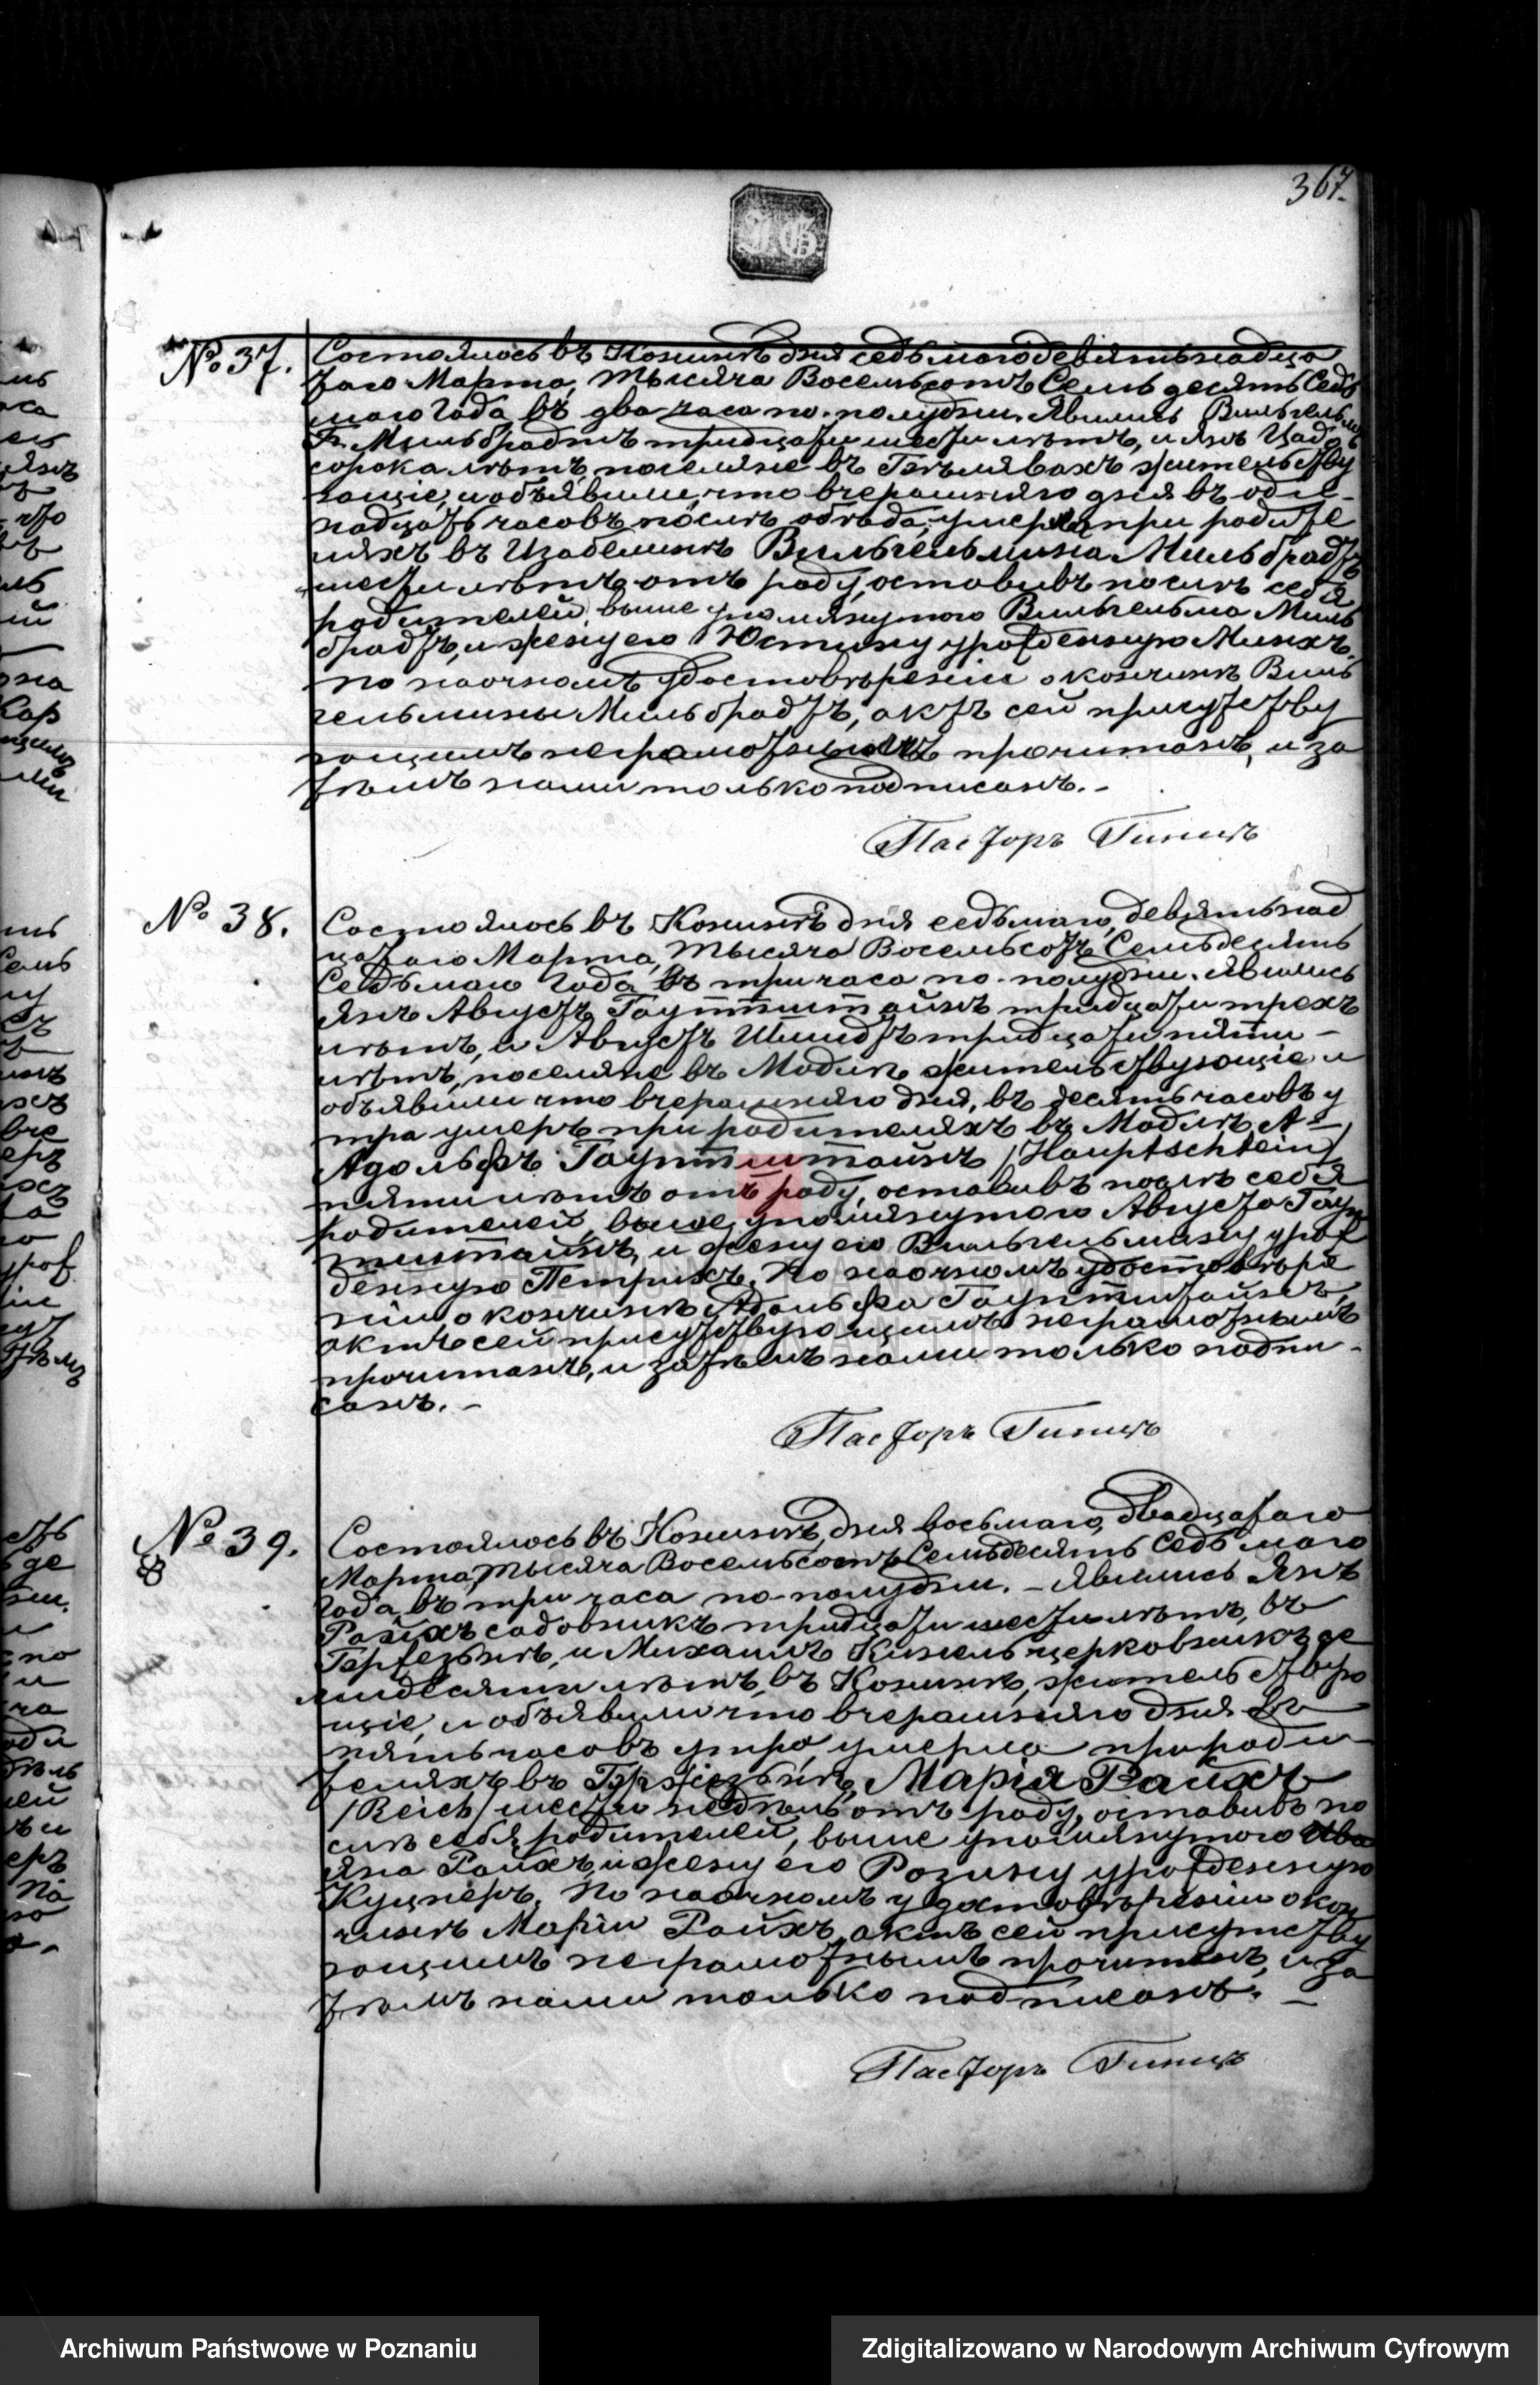 367.
№ 37.
Состоялось въ Конинѣ дня седьмаго девятьнадца
таго Марта, тысяча Восемьсотъ Семьдесятъ Седь
маго Года, въ два часа по-полудни. Явились Вильгельм
Мильбрадтъ тридцати шести лѣтъ, и Янъ
сорока лѣтъ, поселяне въ жительству
ющіе, и объявили, что вчерашняго дня въ оди-
надцать часовъ послѣ обѣда, умерла при родите
ляхъ въ Изабелинѣ Вильгельмина Мильбрадтъ
шести лѣтъ отъ роду, оставивъ послѣ себя
родителей, выше упомянутого Вильгельма Миль
брадтъ, и жену его Юстину урожденную Минхъ.
По наочномъ удостовѣреніи о кончинѣ Виль
гельмины Мильбрадтъ, актъ сей присутству
ющимъ неграмотнымъ прочитанъ, и за
тѣмъ нами только подписанъ. -
Пасторъ Гинцъ
№ 38.
Состоялось въ Конинѣ дня седьмаго, девятьнад
цатаго Марта, тысяча Восемьсотъ Семьдесятъ
Седьмаго Года, въ три часа по-полудни. Явились
Янъ Августъ Гауптштайнъ тридцати трехъ
лѣтъ, и Августъ Шмидтъ тридцати пяти -
лѣтъ, поселяне въ Модлѣ жительствующіе и
объявили что вчерашняго дня, въ десять часовъ у
тра умеръ при родителяхъ въ Модлѣ А-
Адольфъ Гауптштайнъ /Hauptschtein/
пяти лѣтъ отъ роду, оставивъ послѣ себя
родителей, выше упомянутого Августа Гауп
тштайнъ, и жену его Вильгельмину урож
денную Петрихъ. По наочномъ удостовѣре
ніи о кончинѣ Адольфа Гауптштайнъ,
актъ сей присутствующимъ неграмотнымъ
прочитанъ, и затѣмъ нами только подпи-
санъ. -
Пасторъ Гинцъ
№ 39.
Состоялось въ Конинѣ, дня восьмаго, двадцатаго
Марта, тысяча Восемьсотъ Семьдесятъ Седьмаго
Года, въ три часа по-полудни. - Явились Янъ
Райхъ садовникъ тридцати шести лѣтъ, въ
и Михаилъ Кинель церковникъ
лѣтъ, въ Конинѣ, жительствую
щіе, и объявили что вчерашняго дня въ
пять часовъ утра, умерла при роди-
теляхъ въ Марія Райхъ
/Reich/ шести недѣль отъ роду, оставивъ по
слѣ себя родителей, выше упомянутого
Яна Райхъ, и жену его Розину урожденную
Куцнеръ. По наочномъ удостовѣреніи о кон
чинѣ Маріи Райхъ, актъ сей присутству
ющимъ неграмотнымъ прочитанъ, и за
тѣмъ нами только подписанъ. -
Пасторъ Гинцъ
Archiwum Państwowe w Poznaniu
Zdigitalizowano w Narodowym Archiwum Cyfrowym